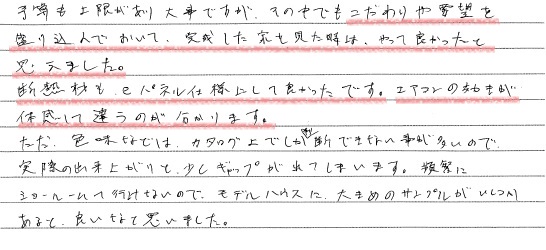 予算も上限があり大事ですが、その中でもこだわりや要望を
盛り込んでおいて、完成した家を見た時は、やって良かったと
思えました。
断熱材も、eパネル仕様にして良かったです。エアコンの効きが
体感して違うのが分かります。
ただ、色味などでは、カタログ上でしか判断できない事が多いので、
実際の出来上がりと、少しギャップが出てしまいます。頻繁に
ショールームへ行けないので、モデルハウスに、大きめのサンプルがいくつか
あると、良いなと思いました。